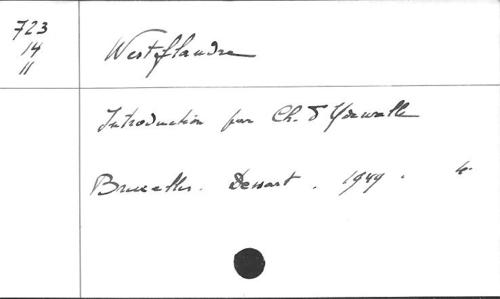 723
14
11
Westflandre
Introduction par Ch. d'Ydewalle
Bruxelles. Dessart. 1949.